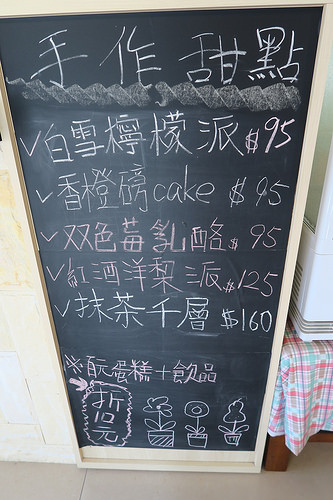 手作甜點
✓白雪檸檬派 $95
✓香橙磅cake $95
✓双色莓乳酪 $95
✓紅酒洋梨派 $125
✓抹茶千層 $160
※酛蛋糕+飲品
折元